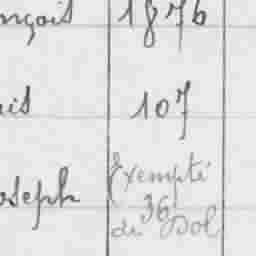 nçois 1876
uis 107
oseph Exempté
36
du Dol